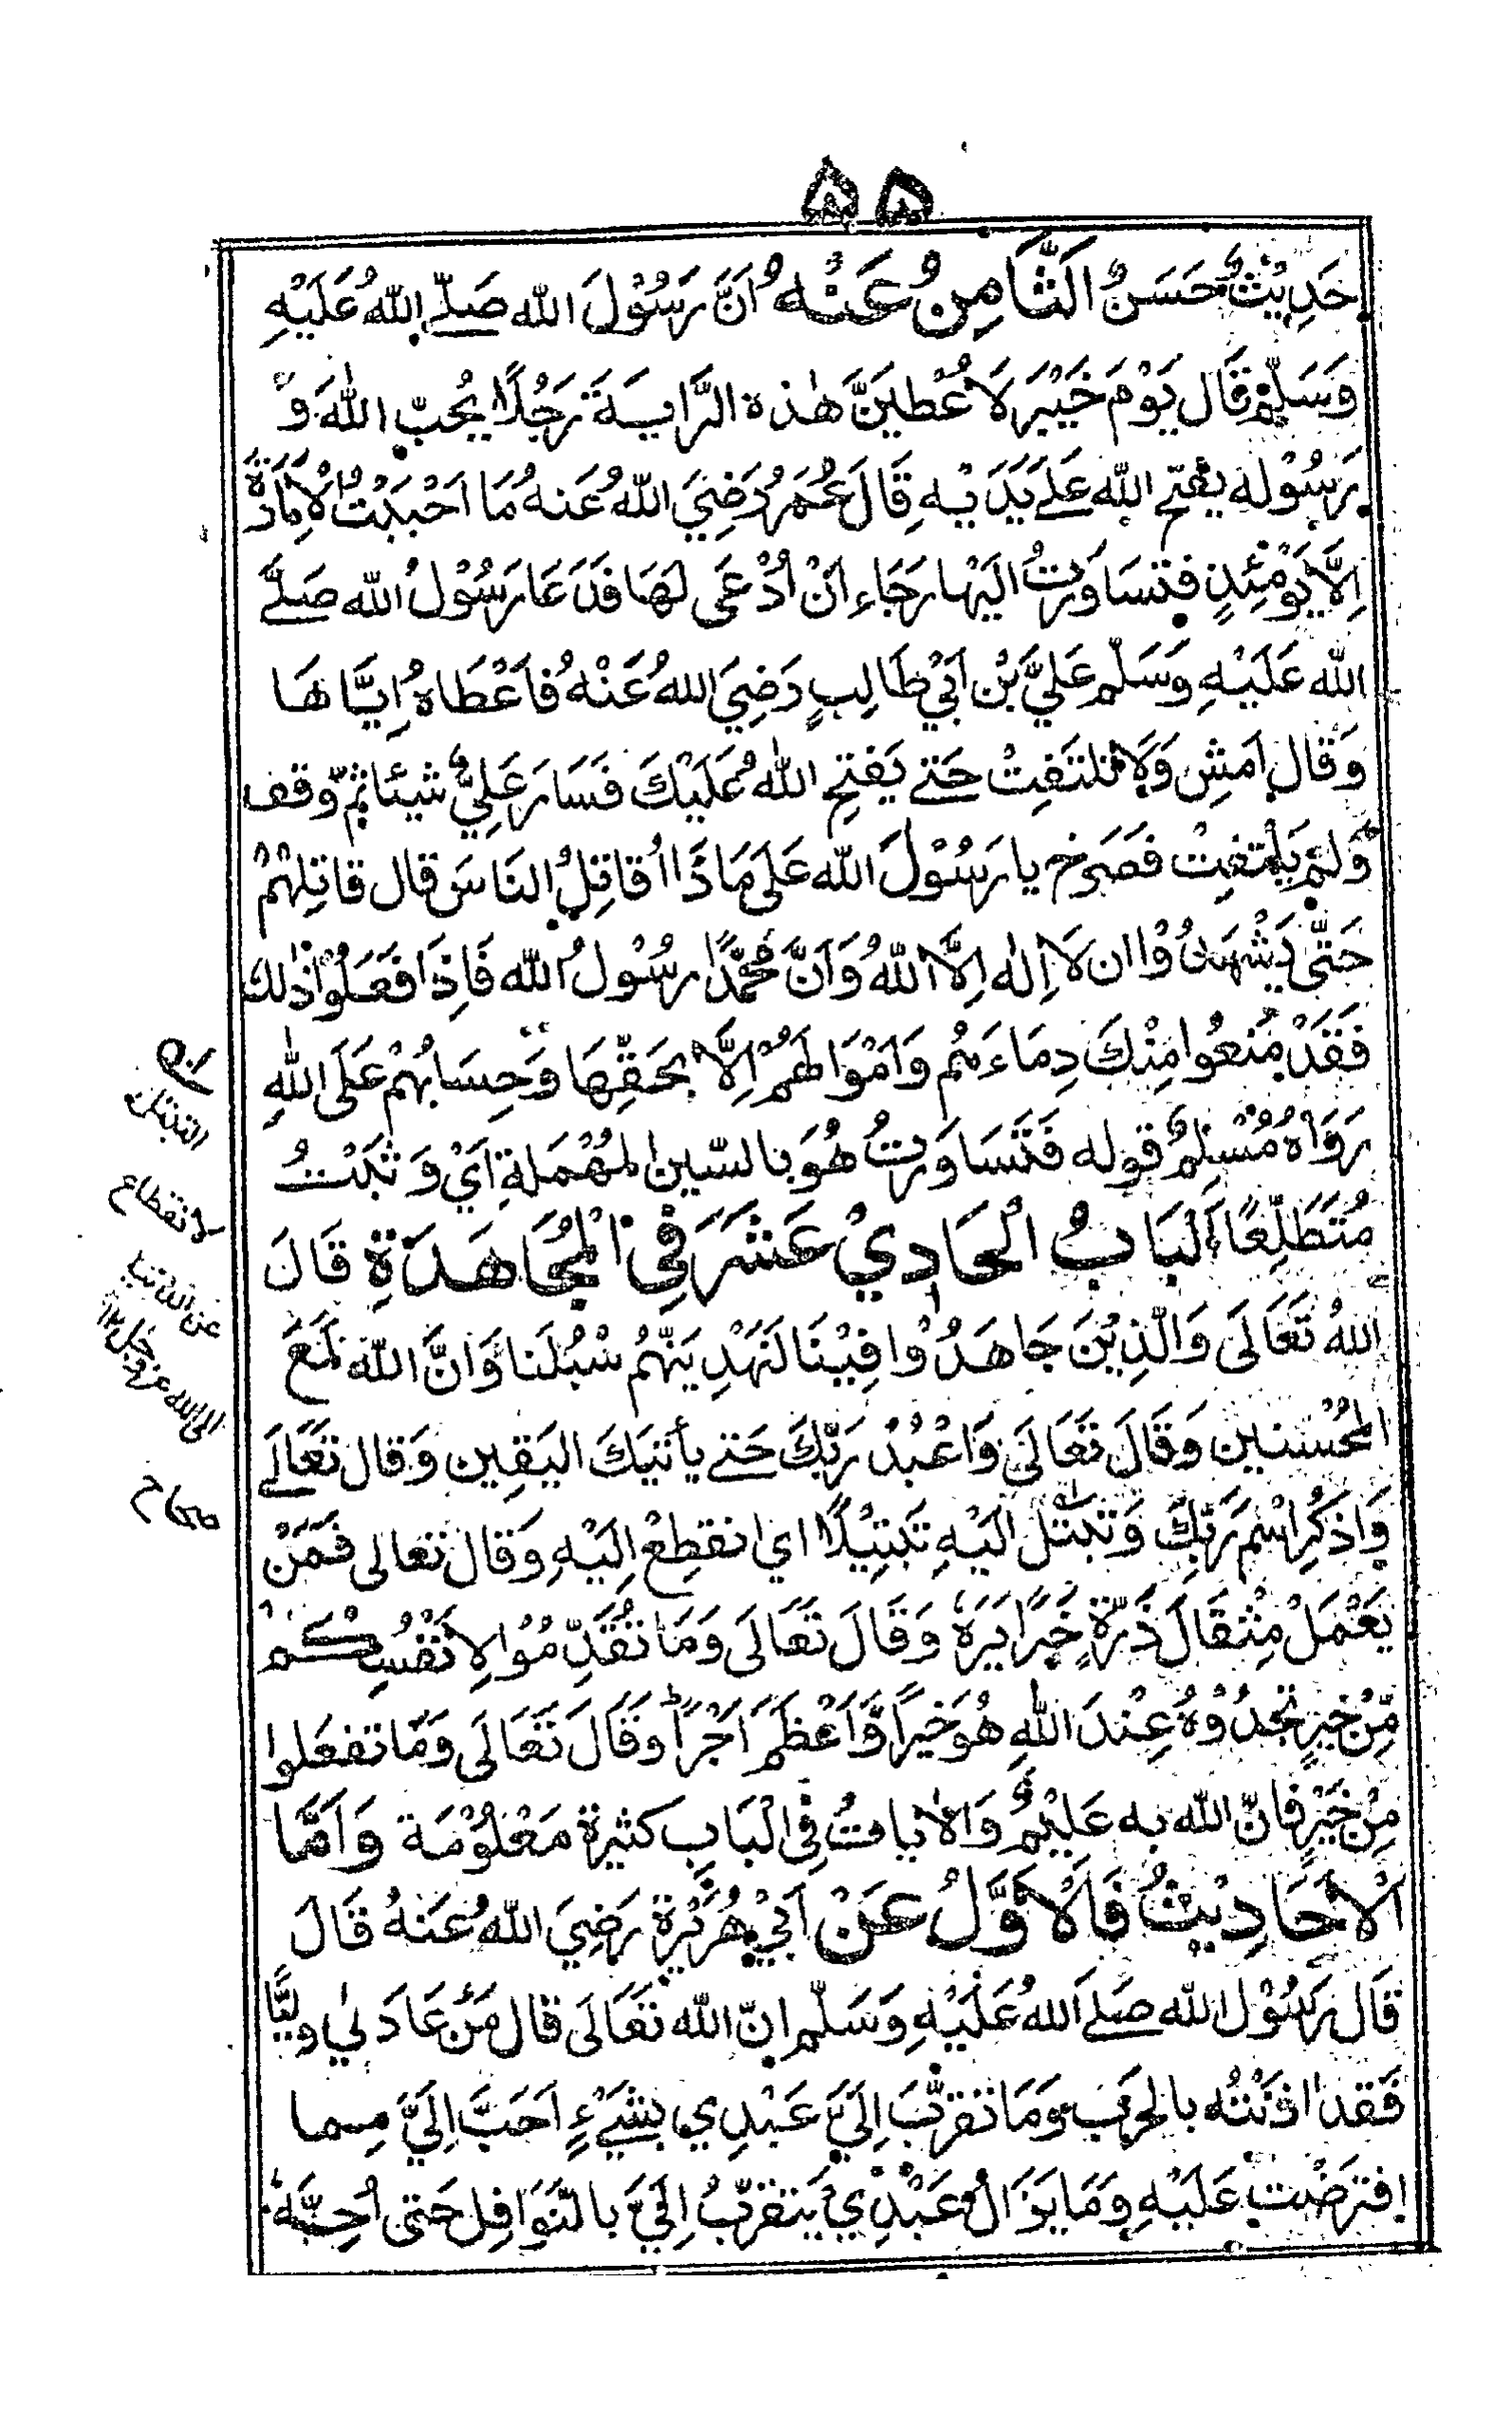 ۵۵
حَدِيْثٌ حَسَنٌ اَلثَّامِنُ عَنْهُ اَنَّ رَسُوْلَ الله صَلَّے اللهُ عَلَيْهِ
وَسَلَّمْ قَال يَوْمَ خَيْبَرَ لَاُعْطِيَنَّ هٰذه الرَّايَةَ رَجُلًا يُحبّ اللهَ وَ
رَسُوْلَه يفتح الله عَلےَ يَدَيْه قَالَ عُمَرُ رَضِيَ اللهُ عَنهُ مَا اَحْبَبْتُ الْاِمَارَةَ
اِلَّا يَوْمَئِذٍ فتَسَاوَرتُ اليَها رَجَاء اَنْ اُدْعَى لَهَا فَدَعَا رَسُوْلُ الله صَلَّے
الله عَلَيْهِ وَسَلّم عَلِيَّ بْن اَبِيْ طَالِبٍ رَضِيَ اللهُ عَنْهُ فاَعْطَاهُ اِيَّاهَا
وَقال اِمَشِ وَلَا تَلتَفِتْ حَتے يَفتح اللهُ عَلَيْكَ فَسَارَ عَلِيٌّ شيئا ثمّ وَقف
وَلَمْ يَلْتفِت فصَرخ يا رَسُوْلَ الله عَلَى مَا ذَا اُقاتِلُ النَاسَ قال قاتِلهُمْ
حَتّى يَشْهَدُوْا ان لَا اِلٰه اِلَّا اللهُ وَاَنَّ مُحَمَّدًا رسُوْلُ الله فَاِذَا فَعَلُوْا ذٰلك
فَقَدْ مَنعُوا مِنْكَ دِمَاءَهُم وَاَمْوَالَهُمْ اِلَّا بحَقِّهَا وَحِسَابُهُمْ عَلَى اللهِ
رَوَاهُ مُسْلِمٌ قوله فَتَسَاوَرتُ هُوَ بالسّين المُهْمَلة اَيْ وَثبْتُ
مُتَطَلِّعًا اَلبَابُ الْحَادِيْ عَشَرَ فِي الْمُجَاهَدَةِ قَالَ
اللهُ تَعَالَى وَالّذِيْنَ جَاهَدُوْا فِيْنَا لَنَهْدِيَنّهُم سُبُلَنا وَانَّ اللهَ لَمَعَ
المُحْسِنين وَقَالَ تَعَالَى وَاعْبُدْ رَبّكَ حَتے يأتيَكَ اليَقِين وَقال تعَالَے
وَاذكُرِ اسْمَ رَبِّكَ وَتَبَتَّلْ الَيْهِ تَبْتِيْلًا اي انقطِعْ اِلَيْهِ وَقال تعَالى فَمَنْ
يَعْمَلْ مِثقَالَ ذَرَّةٍ خَيرًا يرَهٗ وَقَالَ تَعَالَى وَمَا تُقَدِّمُوْا لِاَنْفُسِكُمْ
مِّنْ خيرٍ تجدُوْهُ عِنْدَ اللهِ هُوَ خَيرًا وَّاَعْظَمَ اَجْرًا وَقَالَ تَعَالَى وَمَا تفعَلوا
مِنْ خَيْرٍ فانّ الله به عَلِيْمٌ وَالْاٰيات فِي الْبَاب كثيرة مَعْلُوْمَة وَاَمَّا
الْاَحَادِيْثُ فَالْاَوَّلُ عَنْ اَبِيْ هُرَيْرَةَ رَضِيَ اللهُ عَنهُ قَالَ
قَال رَسُوْل الله صَلےَ اللهُ عَلَيْهِ وَسَلّم انّ الله تعَالَى قال مَنْ عَادَ لي وليًّا
فَقد اٰذنته بالحرب وَمَا تقرَّبَ اِلَيَّ عَبْدِي بشَيْءٍ اَحَبَّ اِلَيَّ مِما
افترَضْت عَلَيْهِ وَمَا يَزَالُ عَبْدِيْ يَتقرّبُ اِلَيَّ بالنّوَافِل حَتى اُحِبَّهٗ
التبتل
الانقطاع
عن الدنيا
الى الله عزوجل ١٢
صراح